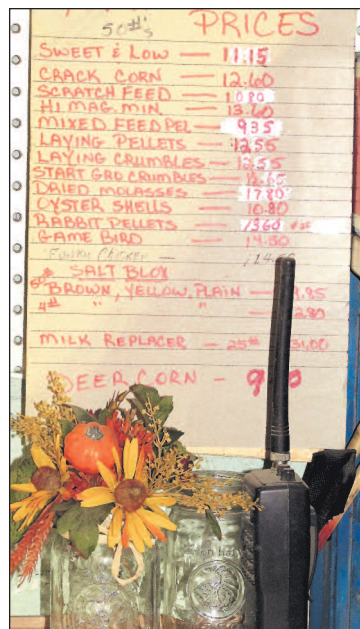 50#'s PRICES
SWEET & LOW — 11.15
CRACK CORN — 12.60
SCRATCH FEED — 10.80
HI MAG. MIN — 13.60
MIXED FEED PEL — 9.35
LAYING PELLETS — 12.55
LAYING CRUMBLES — 12.55
START GRO CRUMBLES — 12.65
DRIED MOLASSES — 17.80
OYSTER SHELLS — 10.80
RABBIT PELLETS — 13.60
GAME BIRD — 14.50
FUNKY CHICKEN —
50# SALT BLOX
BROWN, YELLOW, PLAIN —
4# " " —
MILK REPLACER — 25#
DEER CORN —